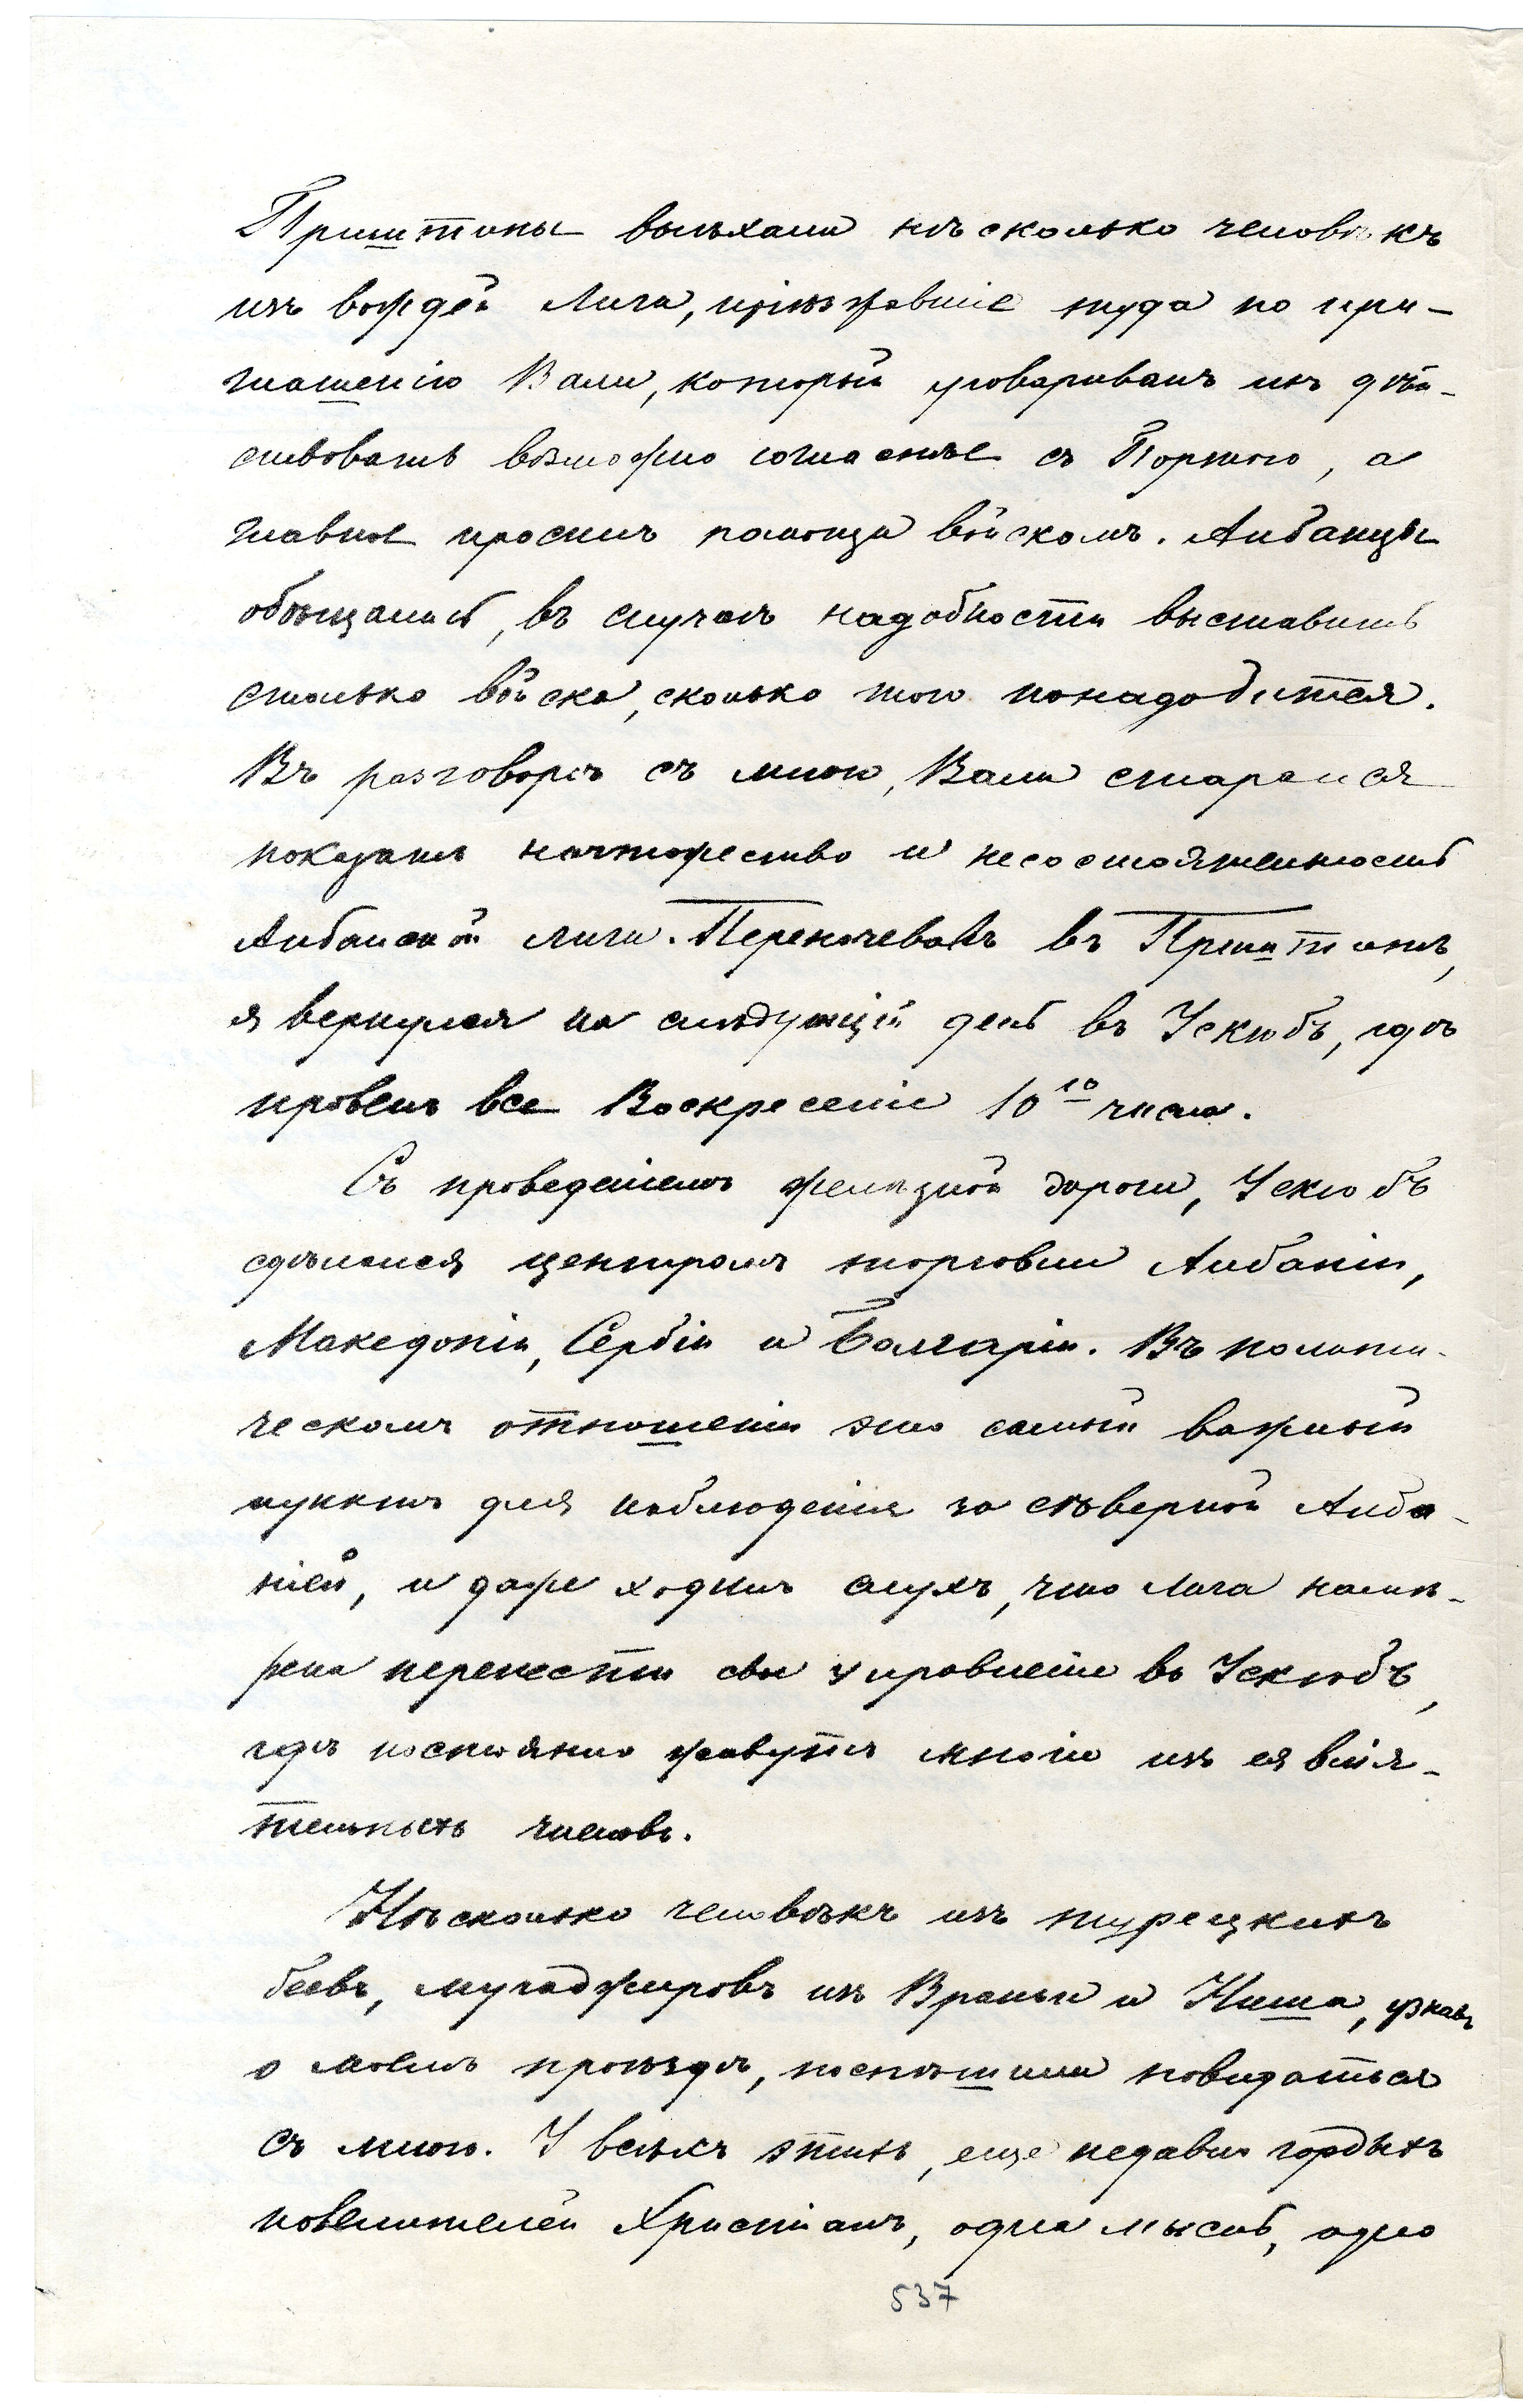 Приштины выѣхали нѣсколько человѣкъ
изъ вождей Лиги, пріѣзжавшіе туда по при-
глашенію Вали, который уговаривалъ ихъ дѣй-
ствовать возможно согласнѣе съ Портою, а
главное просилъ помощи войскомъ. Албанцы
обѣщались, въ случаѣ надобности выставить
столько войска, сколько того понадобится.
Въ разговорѣ съ мною, Вали старался
показать ничтожество и несостоятельность
Албанской лиги. Переночевавъ въ Приштинѣ,
я вернулся на слѣдующій день въ Ускюбъ, гдѣ
провелъ все Воскресеніе 10го числа.
Съ проведеніемъ желѣзной дороги, Ускюбъ
сдѣлался центромъ торговли Албаніи,
Македоніи, Сербіи и Болгаріи. Въ полити-
ческомъ отношеніи это самый важный
пунктъ для наблюденія за сѣверной Алба-
ніей, и даже ходитъ слухъ, что Лига намѣ-
рена перенести свое управленіе въ Ускюбъ,
гдѣ постоянно живутъ многіе изъ ея влія-
тельныхъ членовъ.
Нѣсколько человѣкъ изъ турецкихъ
беевъ, мугаджировъ изъ Враньи и Ниша, узнавъ
о моемъ проѣздѣ, поспѣшили повидаться
съ мною. У всѣхъ этихъ, еще недавно гордыхъ
повелителей Христіанъ, одна мысль, одно
537